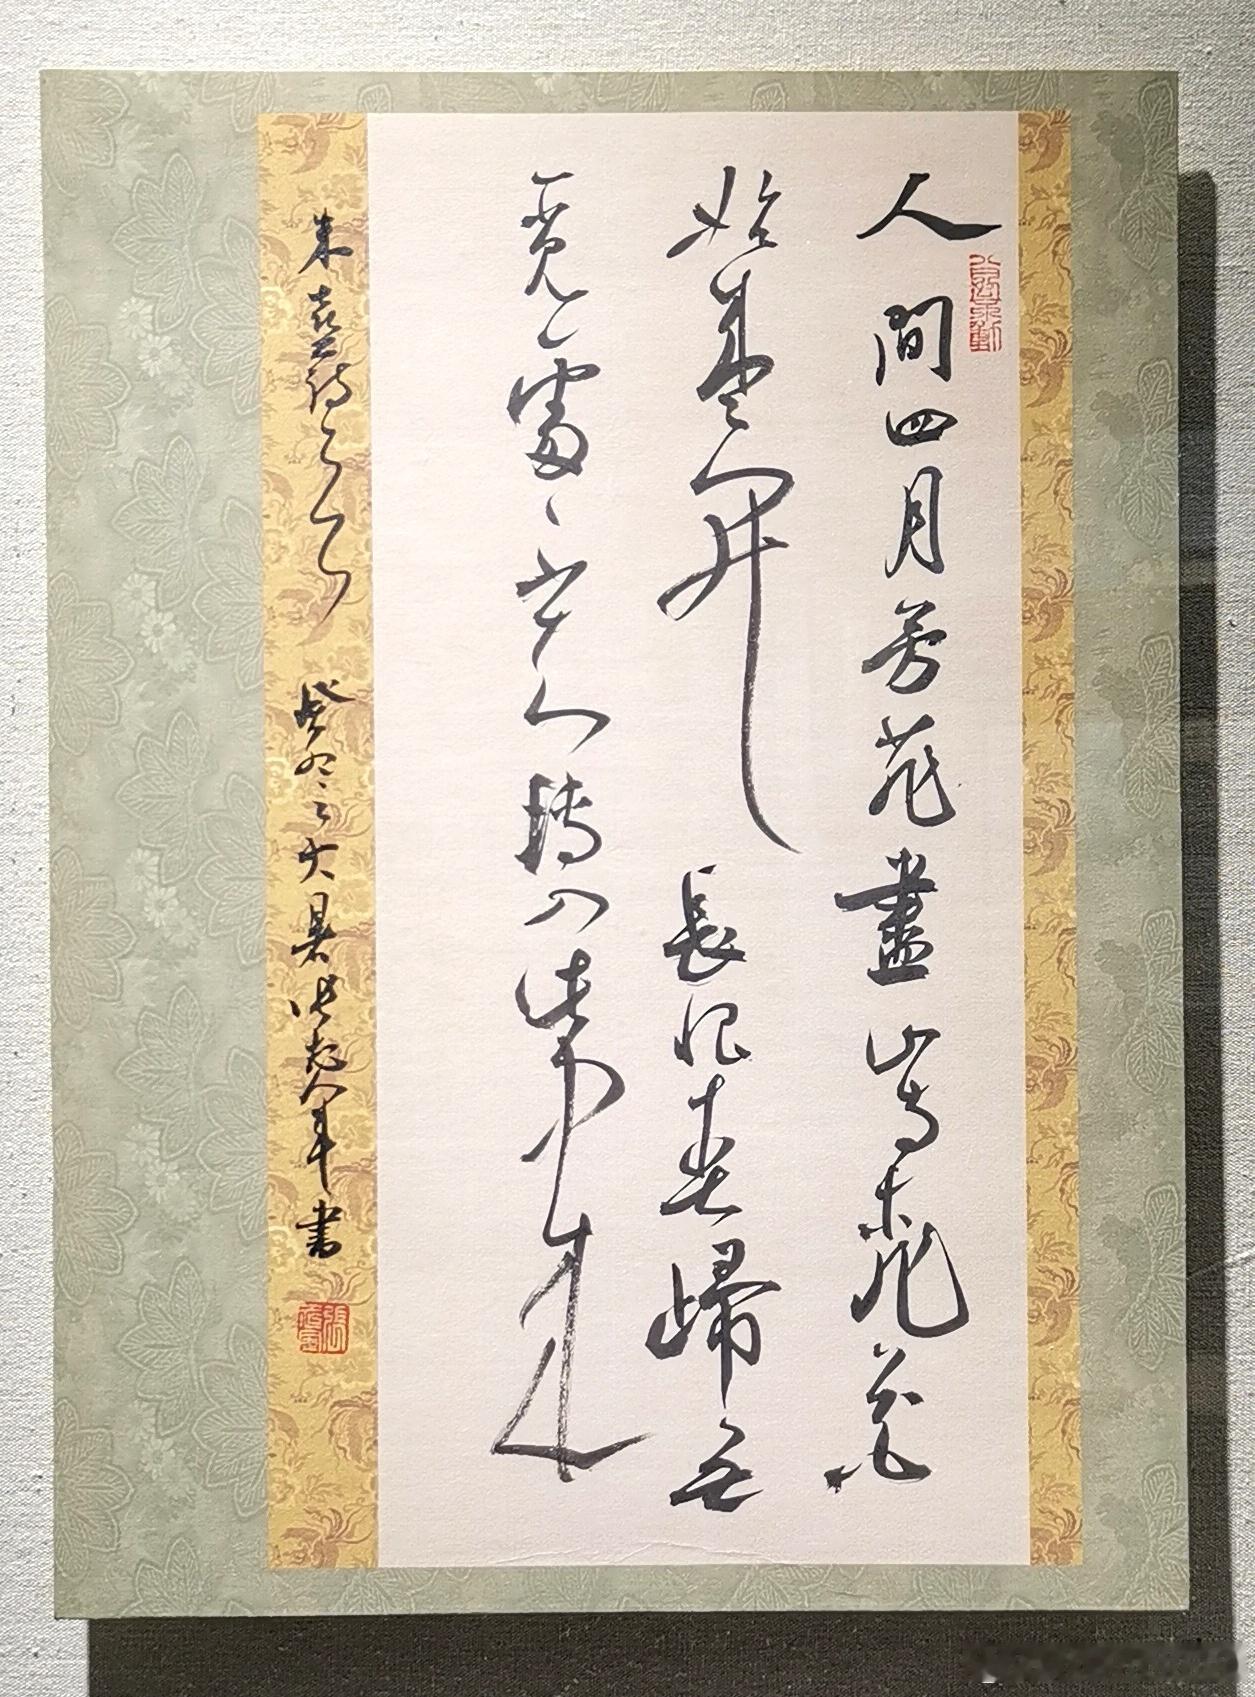 人間四月芳菲盡山寺桃花
始盛開長恨春歸無
覓處不知轉入此中來
朱熹詩 癸卯之大暑 書